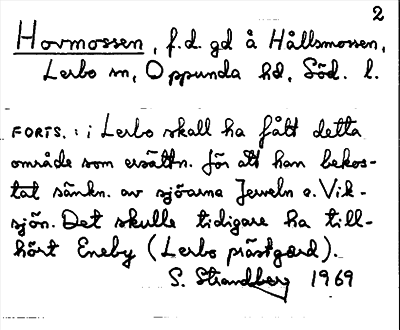 2
Hovmossen, f.d. gd å Hållsmossen,
Lerbo sn, Oppunda hd, Söd. l.
FORTS.: i Lerbo skall ha fått detta
område som ersättn. för att han bekos-
tat sänkn. av sjöarna Jeweln o. Vik-
sjön. Det skulle tidigare ha till-
hört Eneby (Lerbo prästgård).
S. Strandberg 1969